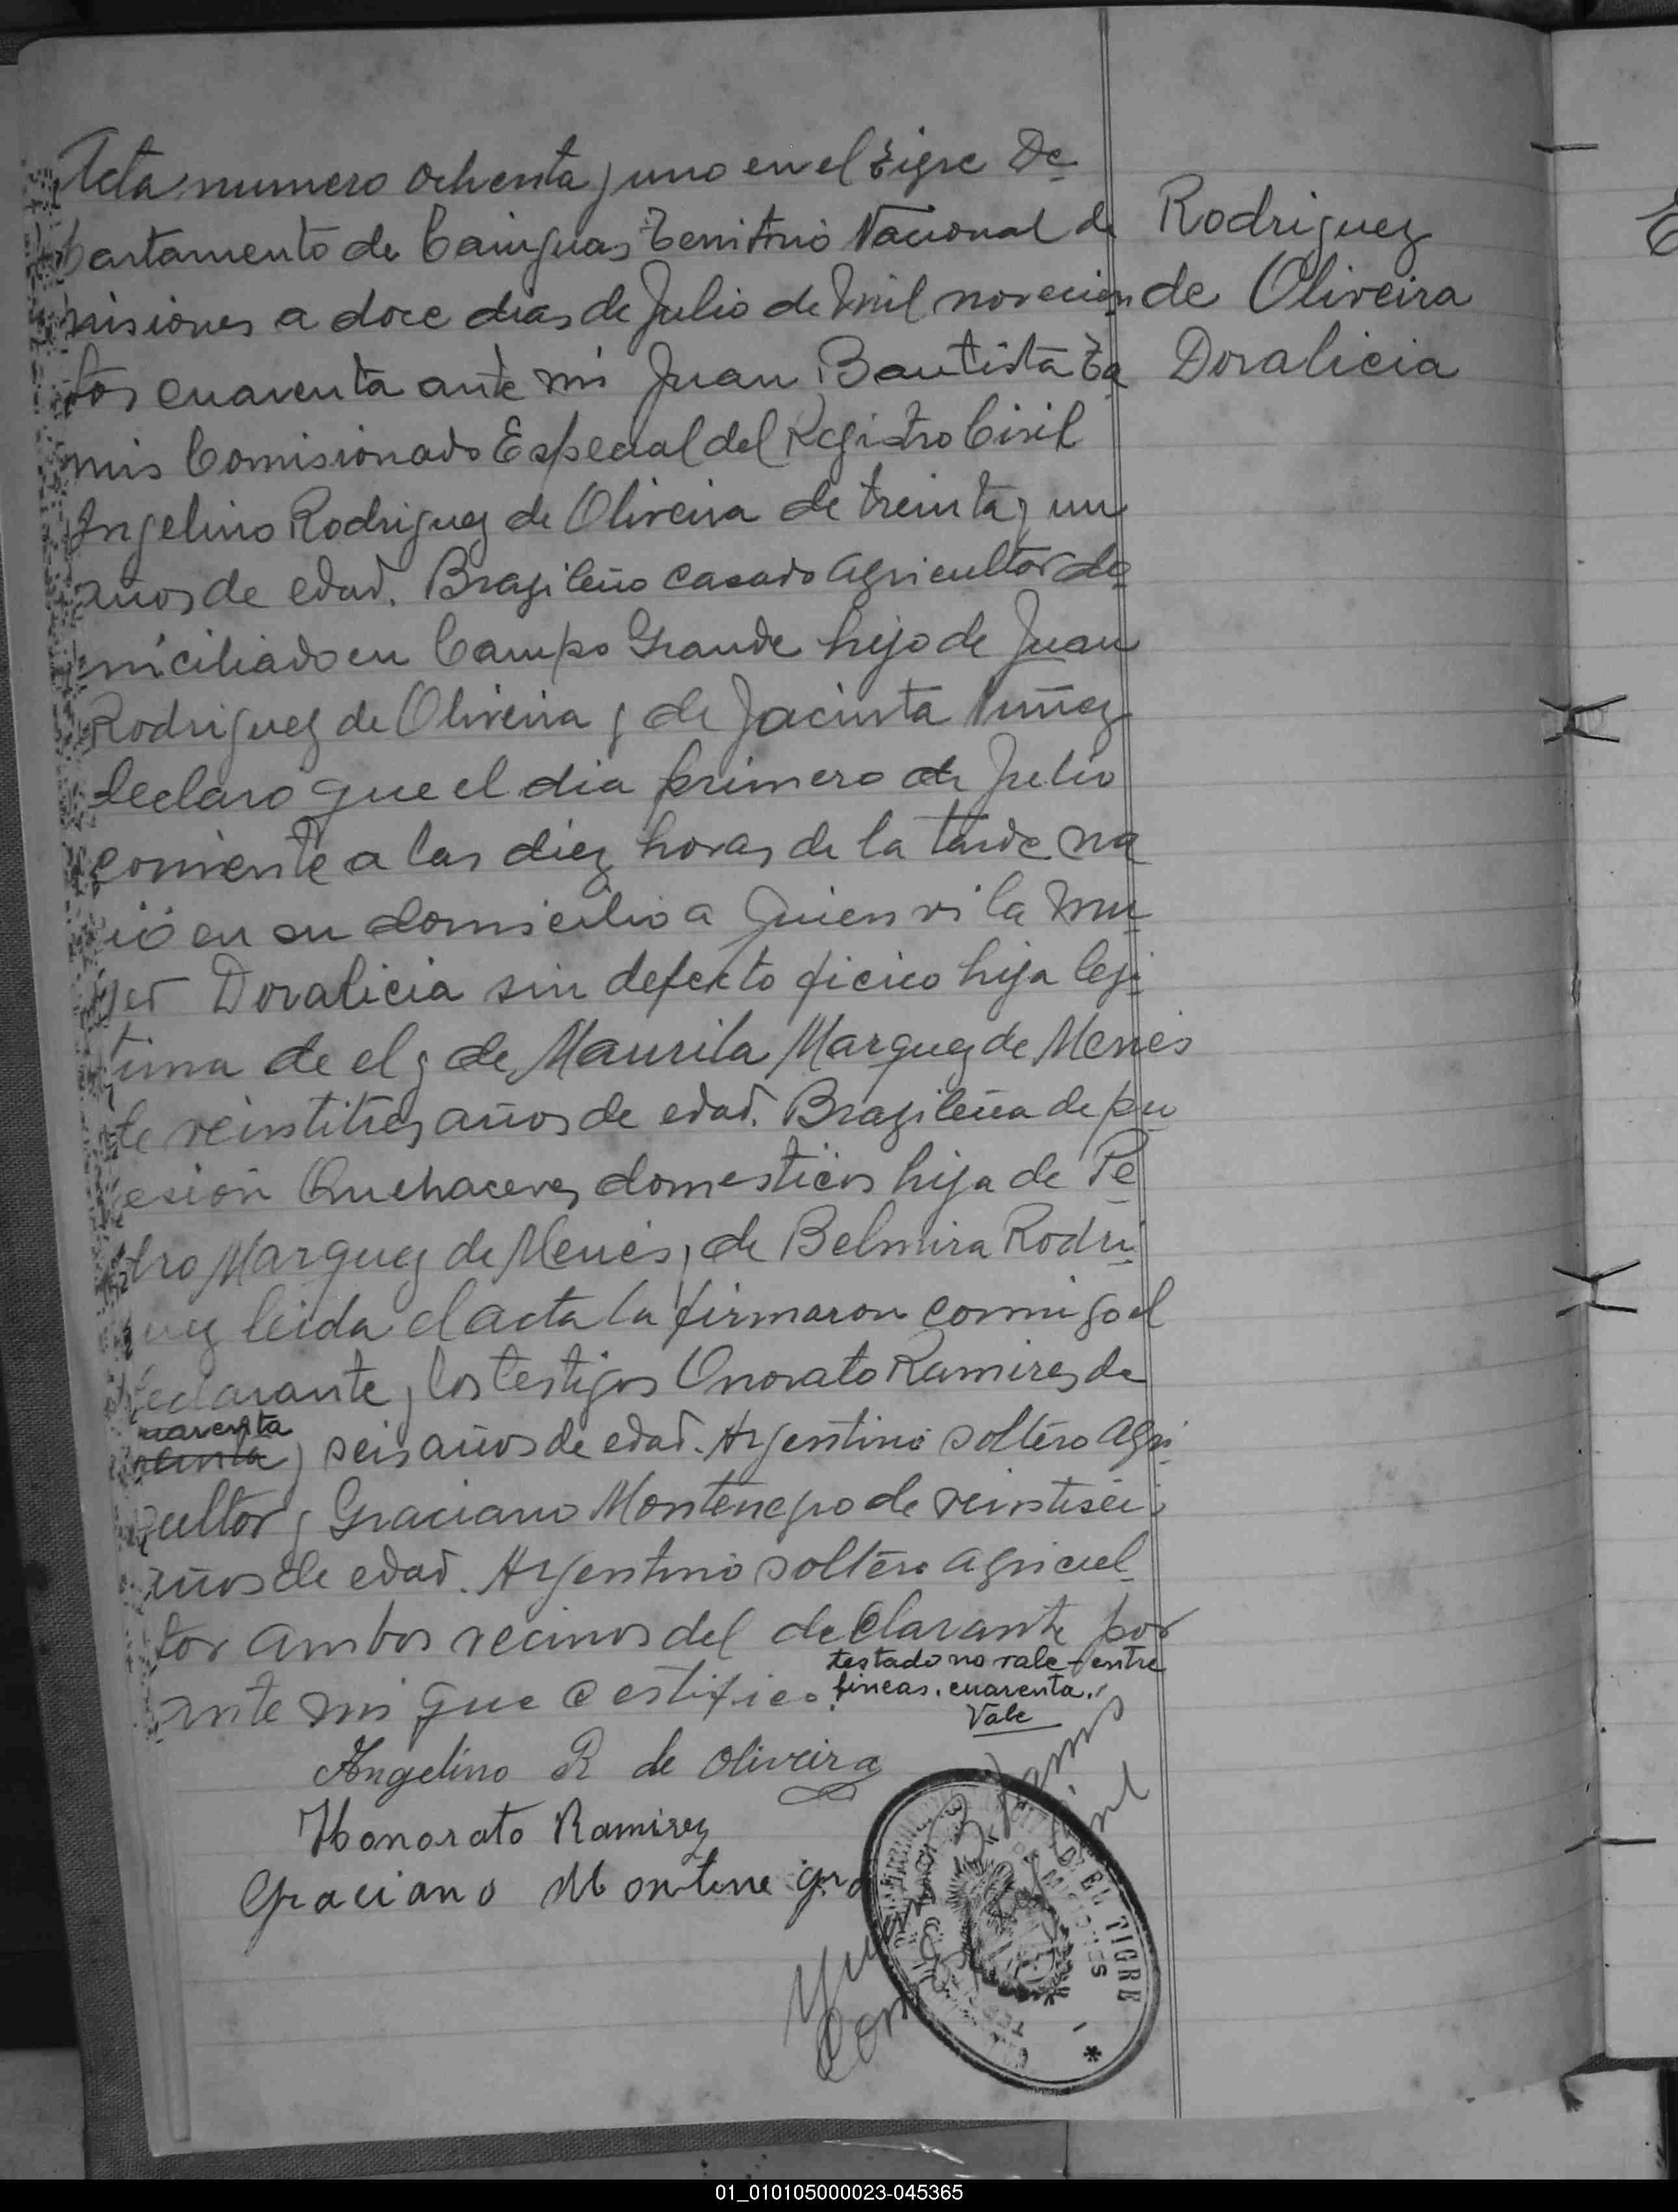 Acta numero ochenta y uno en el Tigre De
partamento de Cainguas Territorio Nacional de
misiones a doce dias de Julio de mil novecien
tos cuarenta ante mi Juan Bautista Ra
mis Comisionado Especial del Registro Civil
Angelino Rodriguez de Oliveira de treinta y un
años de edad. Brazileño casado agricultor do
miciliado en Campo Grande hijo de Juan
Rodriguez de Oliveira y de Jacinta Nuñez
declaro que el dia primero de Julio
corriente a las diez horas de la tarde na
ció en su domicilio a quien vi la mu
ger Doralicia sin defecto ficico hija legi
tima de el y de Maurila Marquez de Menes
de veintitres años de edad. Brazileña de pro
fesion Quehaceres domesticos hija de Pe
dro Marquez de Menes y de Belmira Rodri
guez leida el acta la firmaron conmigo el
declarante y los testigos Onorato Ramires de
cuarenta
y seis años de edad. Argentino soltero agri
cultor y Graciano Montenegro de veintiseis
años de edad. Argentino soltero agricul
tor ambos vecinos del declarante por
testado no vale - entre
ante mi que certifico. lineas. cuarenta.
Vale
Angelino R de Oliveira
Honorato Ramirez
Graciano Montenegro
EL TIGRE
MISIONES
Rodriguez
de Oliveira
Doralicia
01_010105000023-045365